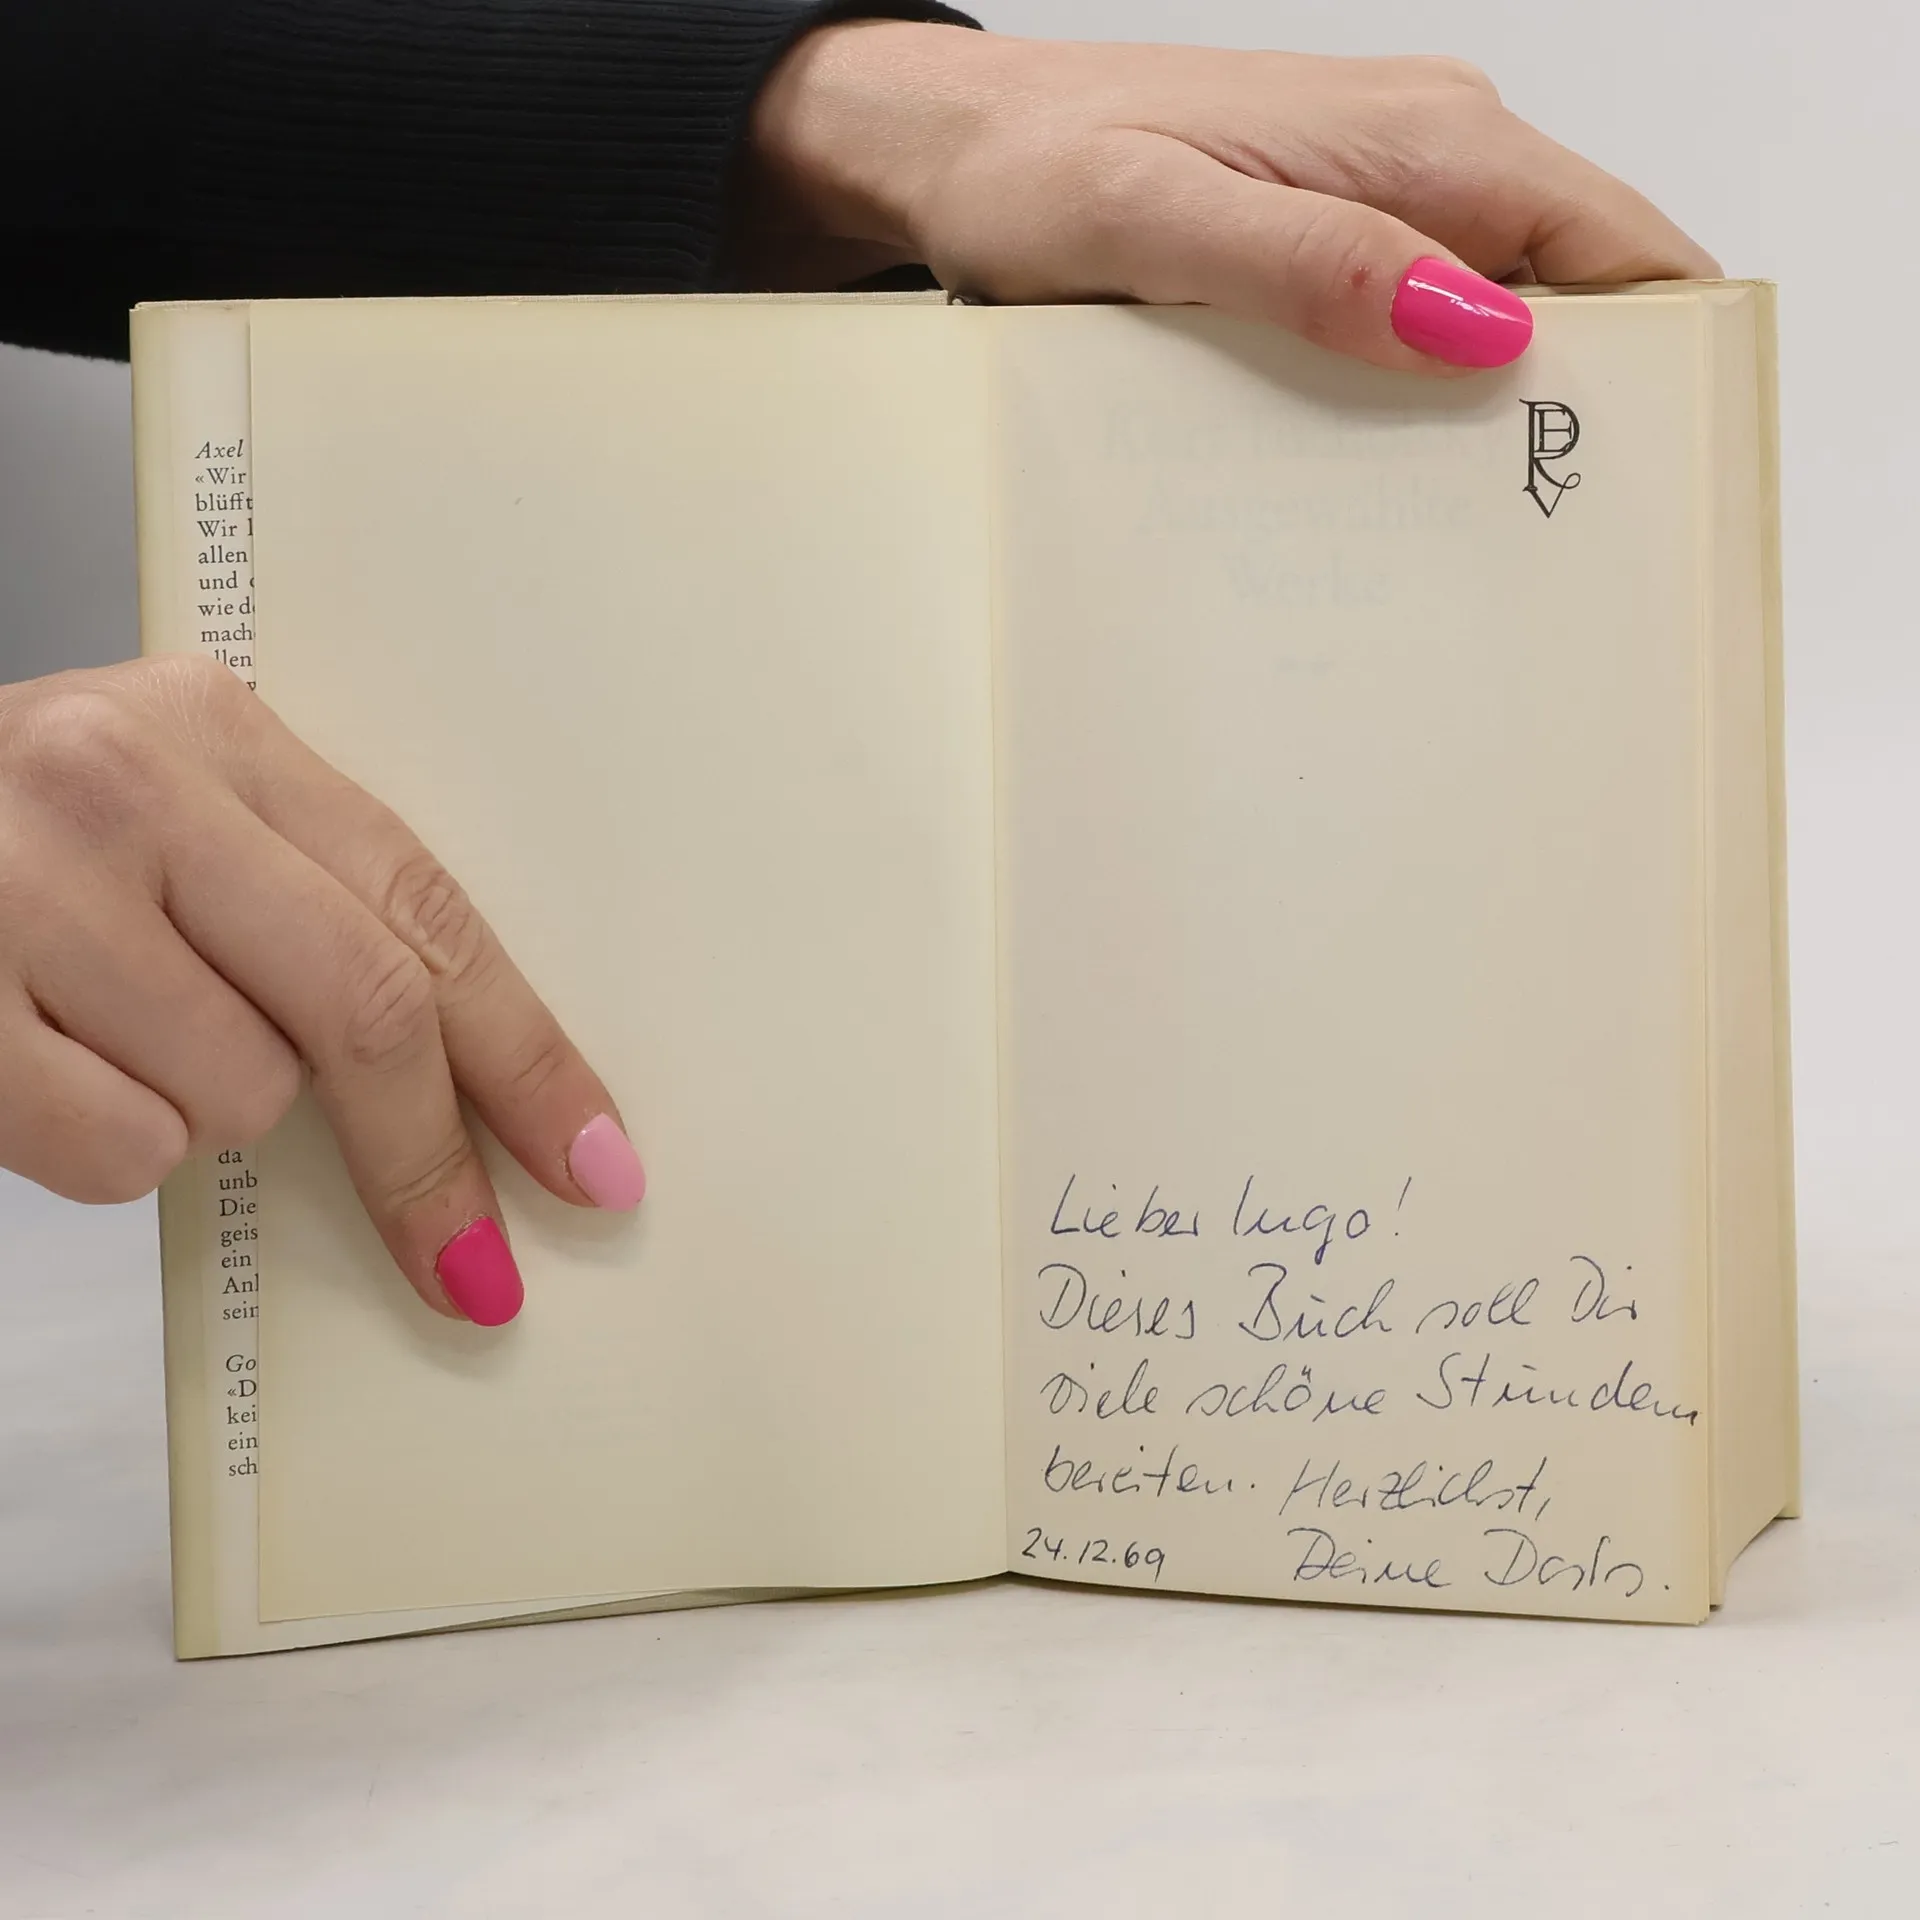 Axel
«Wir
blüfft
Wir l
allen
und
wie d
mach
llen
da
unb
Die
geis
ein
Anl
sein
Go
«D
kei
ein
sch
PEV
Ausgewählte
Werke
Lieber Ingo!
Dieses Buch soll Dir
viele schöne Stunden
bereiten. Herzlichst,
24.12.69 Deine Doris.